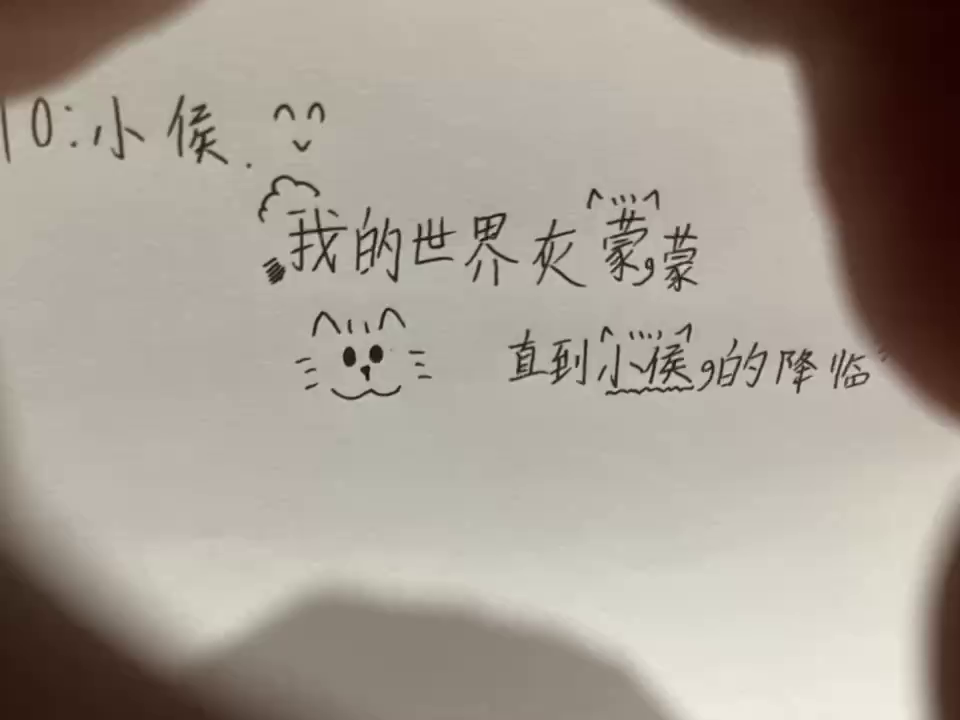 10:小侯.
我的世界灰蒙蒙
直到小侯的降临